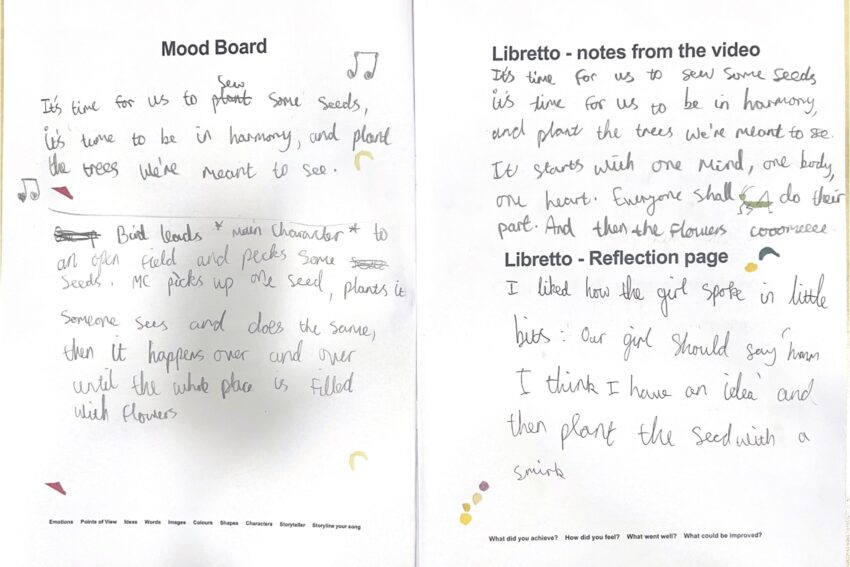 Mood Board
sew
It's time for us to plant some seeds,
it's time to be in harmony, and plant
the trees we're meant to see.
Bird leads *main character* to
an open field and pecks some
seeds. MC picks up one seed, plants it
someone sees and does the same,
then it happens over and over
until the whole place is filled
with flowers
Emotions Points of View Ideas Words Images Colours Shapes Characters Storyteller Storyline your song
Libretto - notes from the video
It's time for us to sew some seeds
it's time for us to be in harmony,
and plant the trees we're meant to see.
It starts with one mind, one body,
one heart. Everyone shall do their
part. And then the flowers cooomeeee.
Libretto - Reflection page
I liked how the girl spoke in little
bits: Our girl should say 'hmm
I think I have an idea' and
then plant the seed with a
smirk
What did you achieve? How did you feel? What went well? What could be improved?